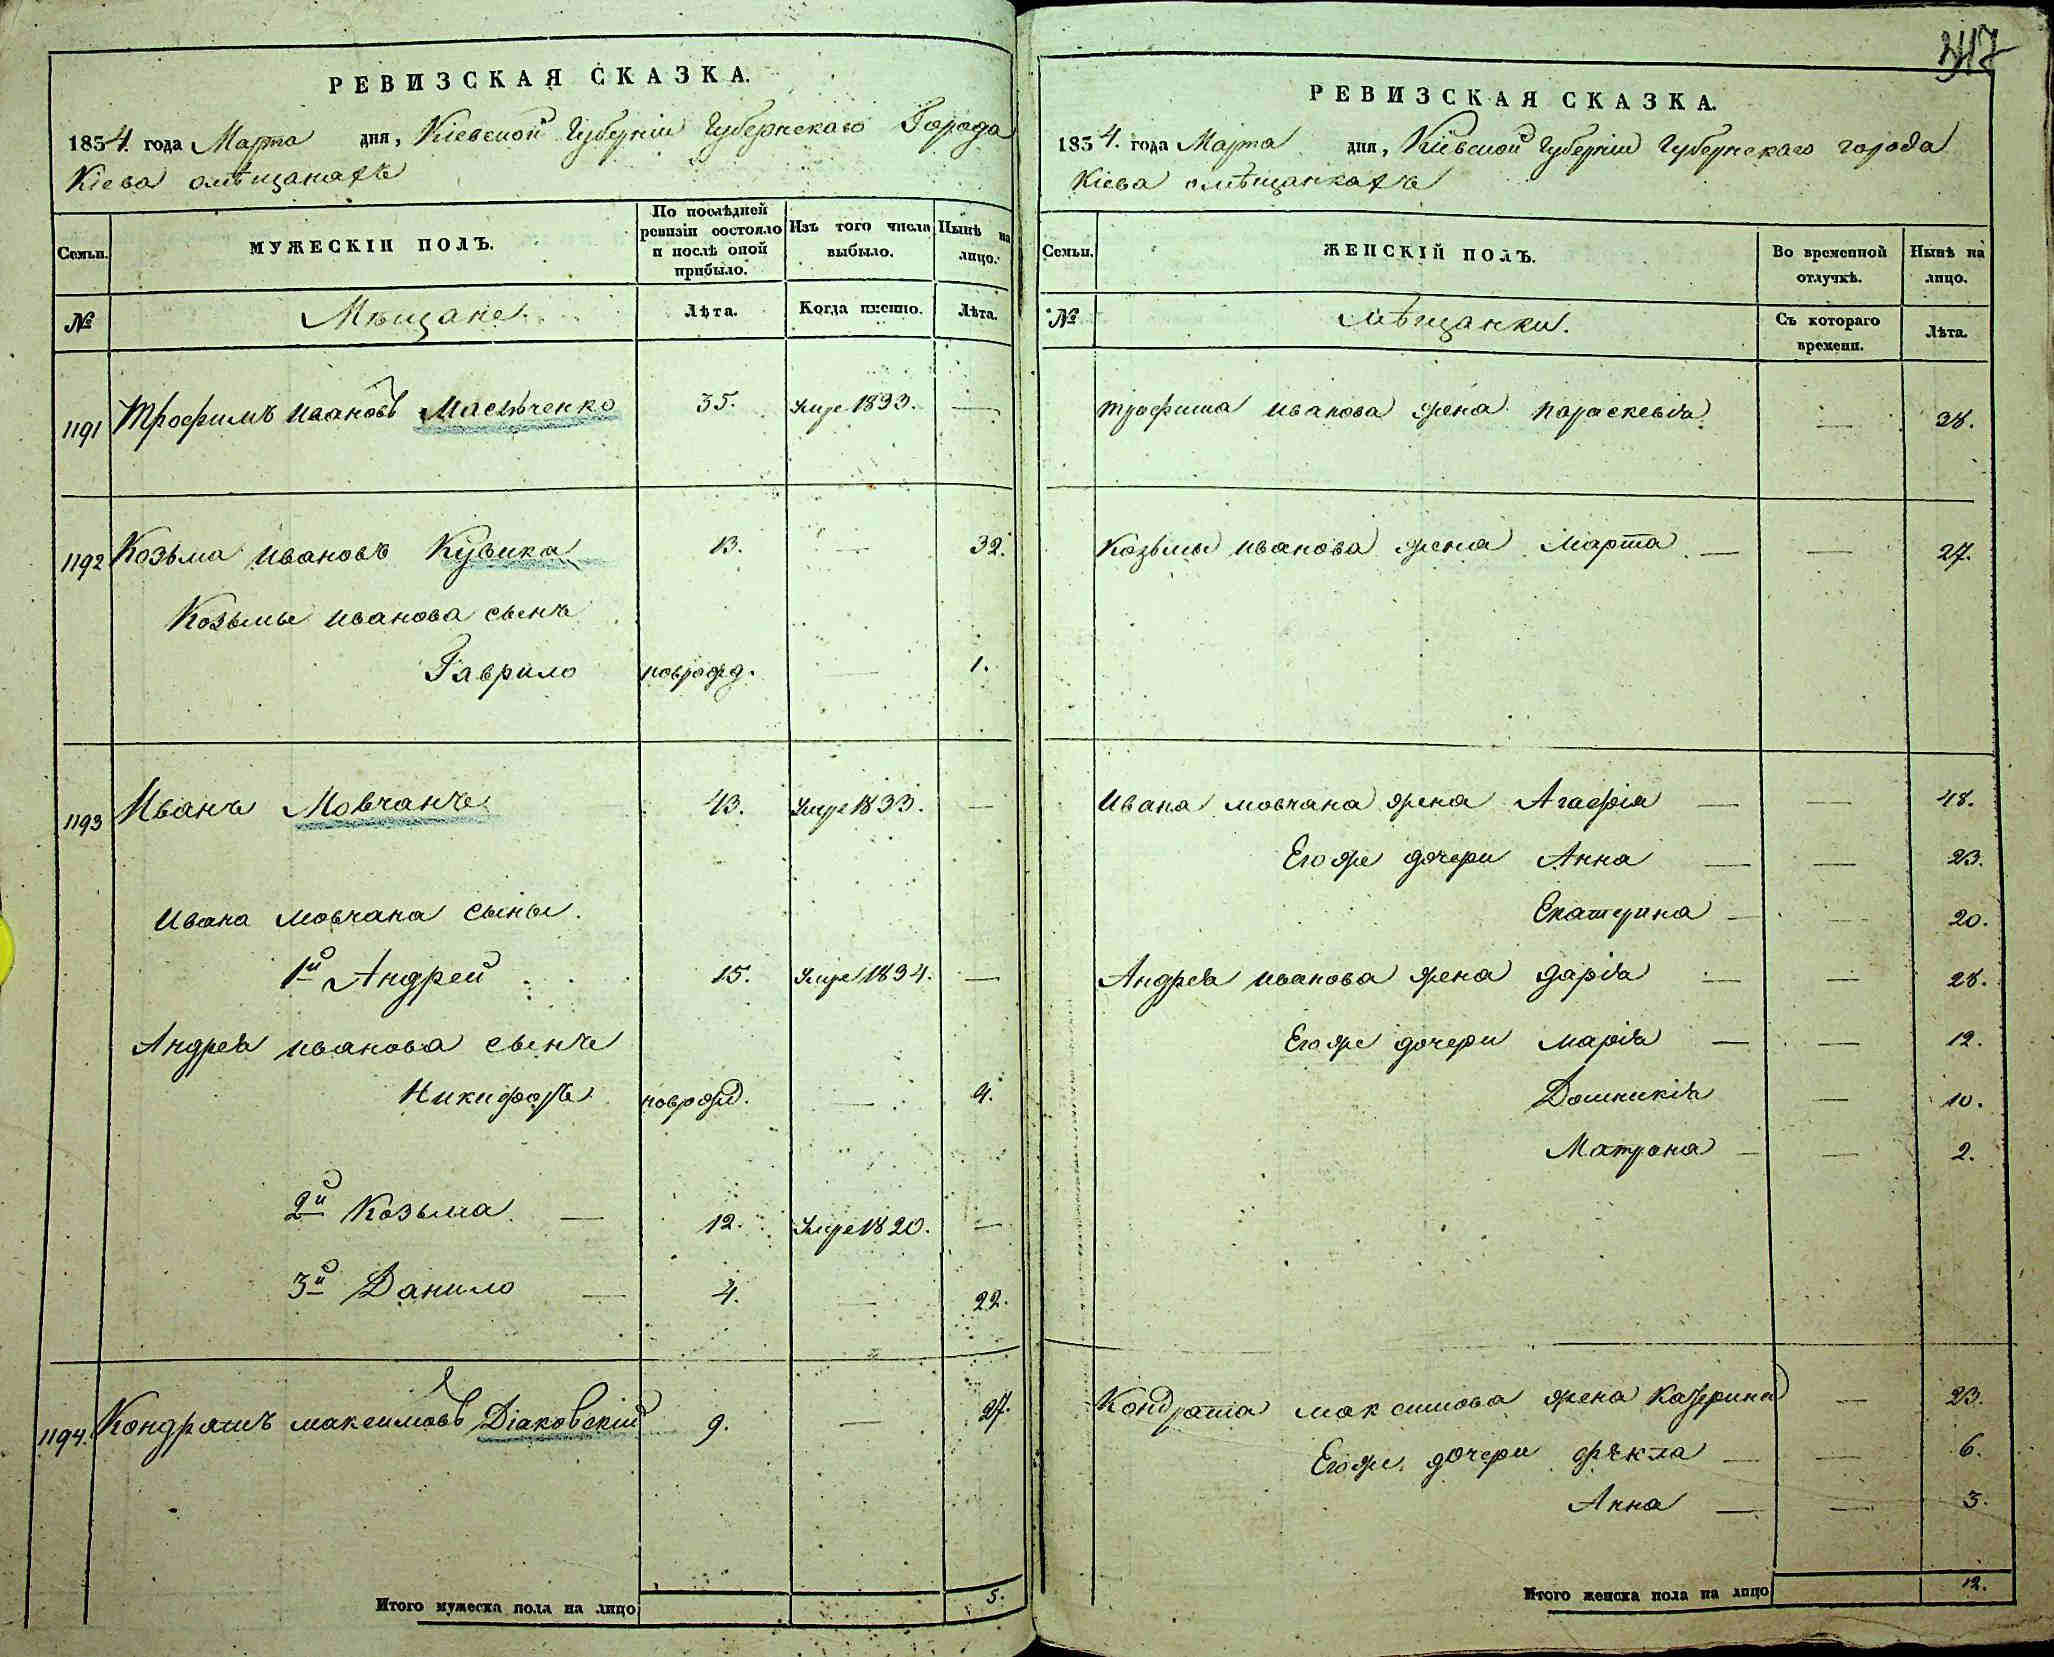 РЕВИЗСКАЯ СКАЗКА.
1854. года Марта дня, Кіевской Губерніи Губернскаго Города
Кіева омѣщанахъ
Семьи. МУЖЕСКІЙ ПОЛЪ. По послѣдней ревизіи состояло и послѣ оной прибыло. Изъ того числа выбыло. Нынѣ на лицо.
№ Мѣщане. Лѣта. Когда именно. Лѣта.
1191 Трофимъ Ивановъ 35. —
1192 Козьма Ивановъ 13. — 32.
Козьмы Иванова сынъ
Гаврило новрожд. — 1.
1193 Иванъ Мовчанъ 43. Умре 1833. —
Ивана Мовчана сыны.
1й Андрей 15. Умре —
Андрея Иванова сынъ
Никифоръ новрожд. — 4.
2й Козьма — 12. Умре 1820. —
3й Данило — 4. — 22.
1194. Кондратъ Максимовъ Діаковскій 9. — 27.
Итого мужеска пола на лицо 5.
317
РЕВИЗСКАЯ СКАЗКА.
1854. года Марта дня, Кіевской Губерніи Губернскаго города
Кіева омѣщанкахъ
Семьи. ЖЕНСКІЙ ПОЛЪ. Во временной отлучкѣ. Нынѣ на лицо.
№ Мѣщанки. Съ котораго времени. Лѣта.
Трофима Иванова жена Параскевія — 38.
Козьмы Иванова жена Марта — — 27.
Ивана Мовчана жена Агафія — — 48.
Его же дочери Анна — — 23.
Екатерина — — 20.
Андрея Иванова жена Дарія — — 28.
Его же дочери Марія — — 12.
Домникія — 10.
Матрона — — 2.
Кондрата Максимова жена Катерина — 23.
Его же дочери Фекла — — 6.
Анна — — 3.
Итого женска пола на лицо 12.